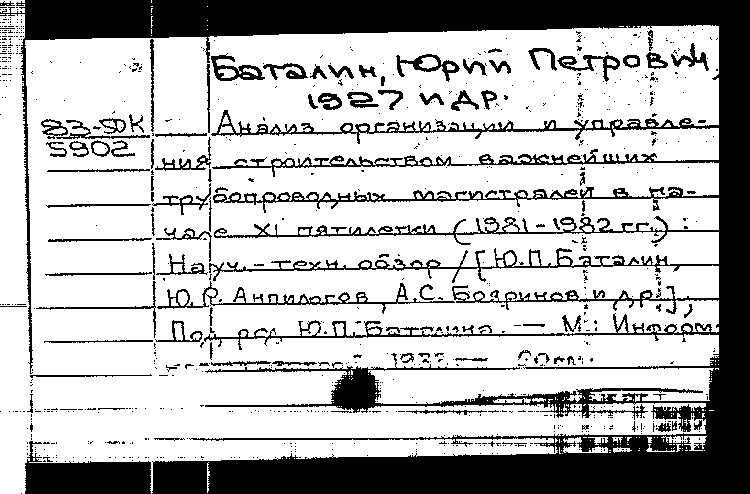 Баталин, Юрий Петрович,
1927 и др.
83-5DK
5902
Анализ организации и управле-
ния строительством важнейших
трубопроводных магистралей в на-
чале XI пятилетки (1981-1982 гг.) :
Науч.-техн. обзор / [Ю.П.Баталин,
Ю.Р. Анпилогов, А.С. Бояринов и др.];
Под ред. Ю.П. Баталина. — М.: Информ-
1983 — 20см.